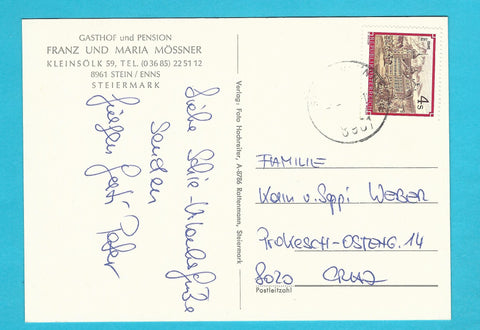 GASTHOF und PENSION
FRANZ UND MARIA MÖSSNER
KLEINSÖLK 59, TEL. (0 36 85) 22 51 12
8961 STEIN / ENNS
STEIERMARK
Liebe Schi-Urlaubsgrüße
senden
Verlag: Foto Hochreiter, A-8786 Rottenmann, Steiermark
4 S
FAMILIE
Karin u. Seppi WEBER
PROKESCH-OSTENG. 14
8020 GRAZ
Postleitzahl